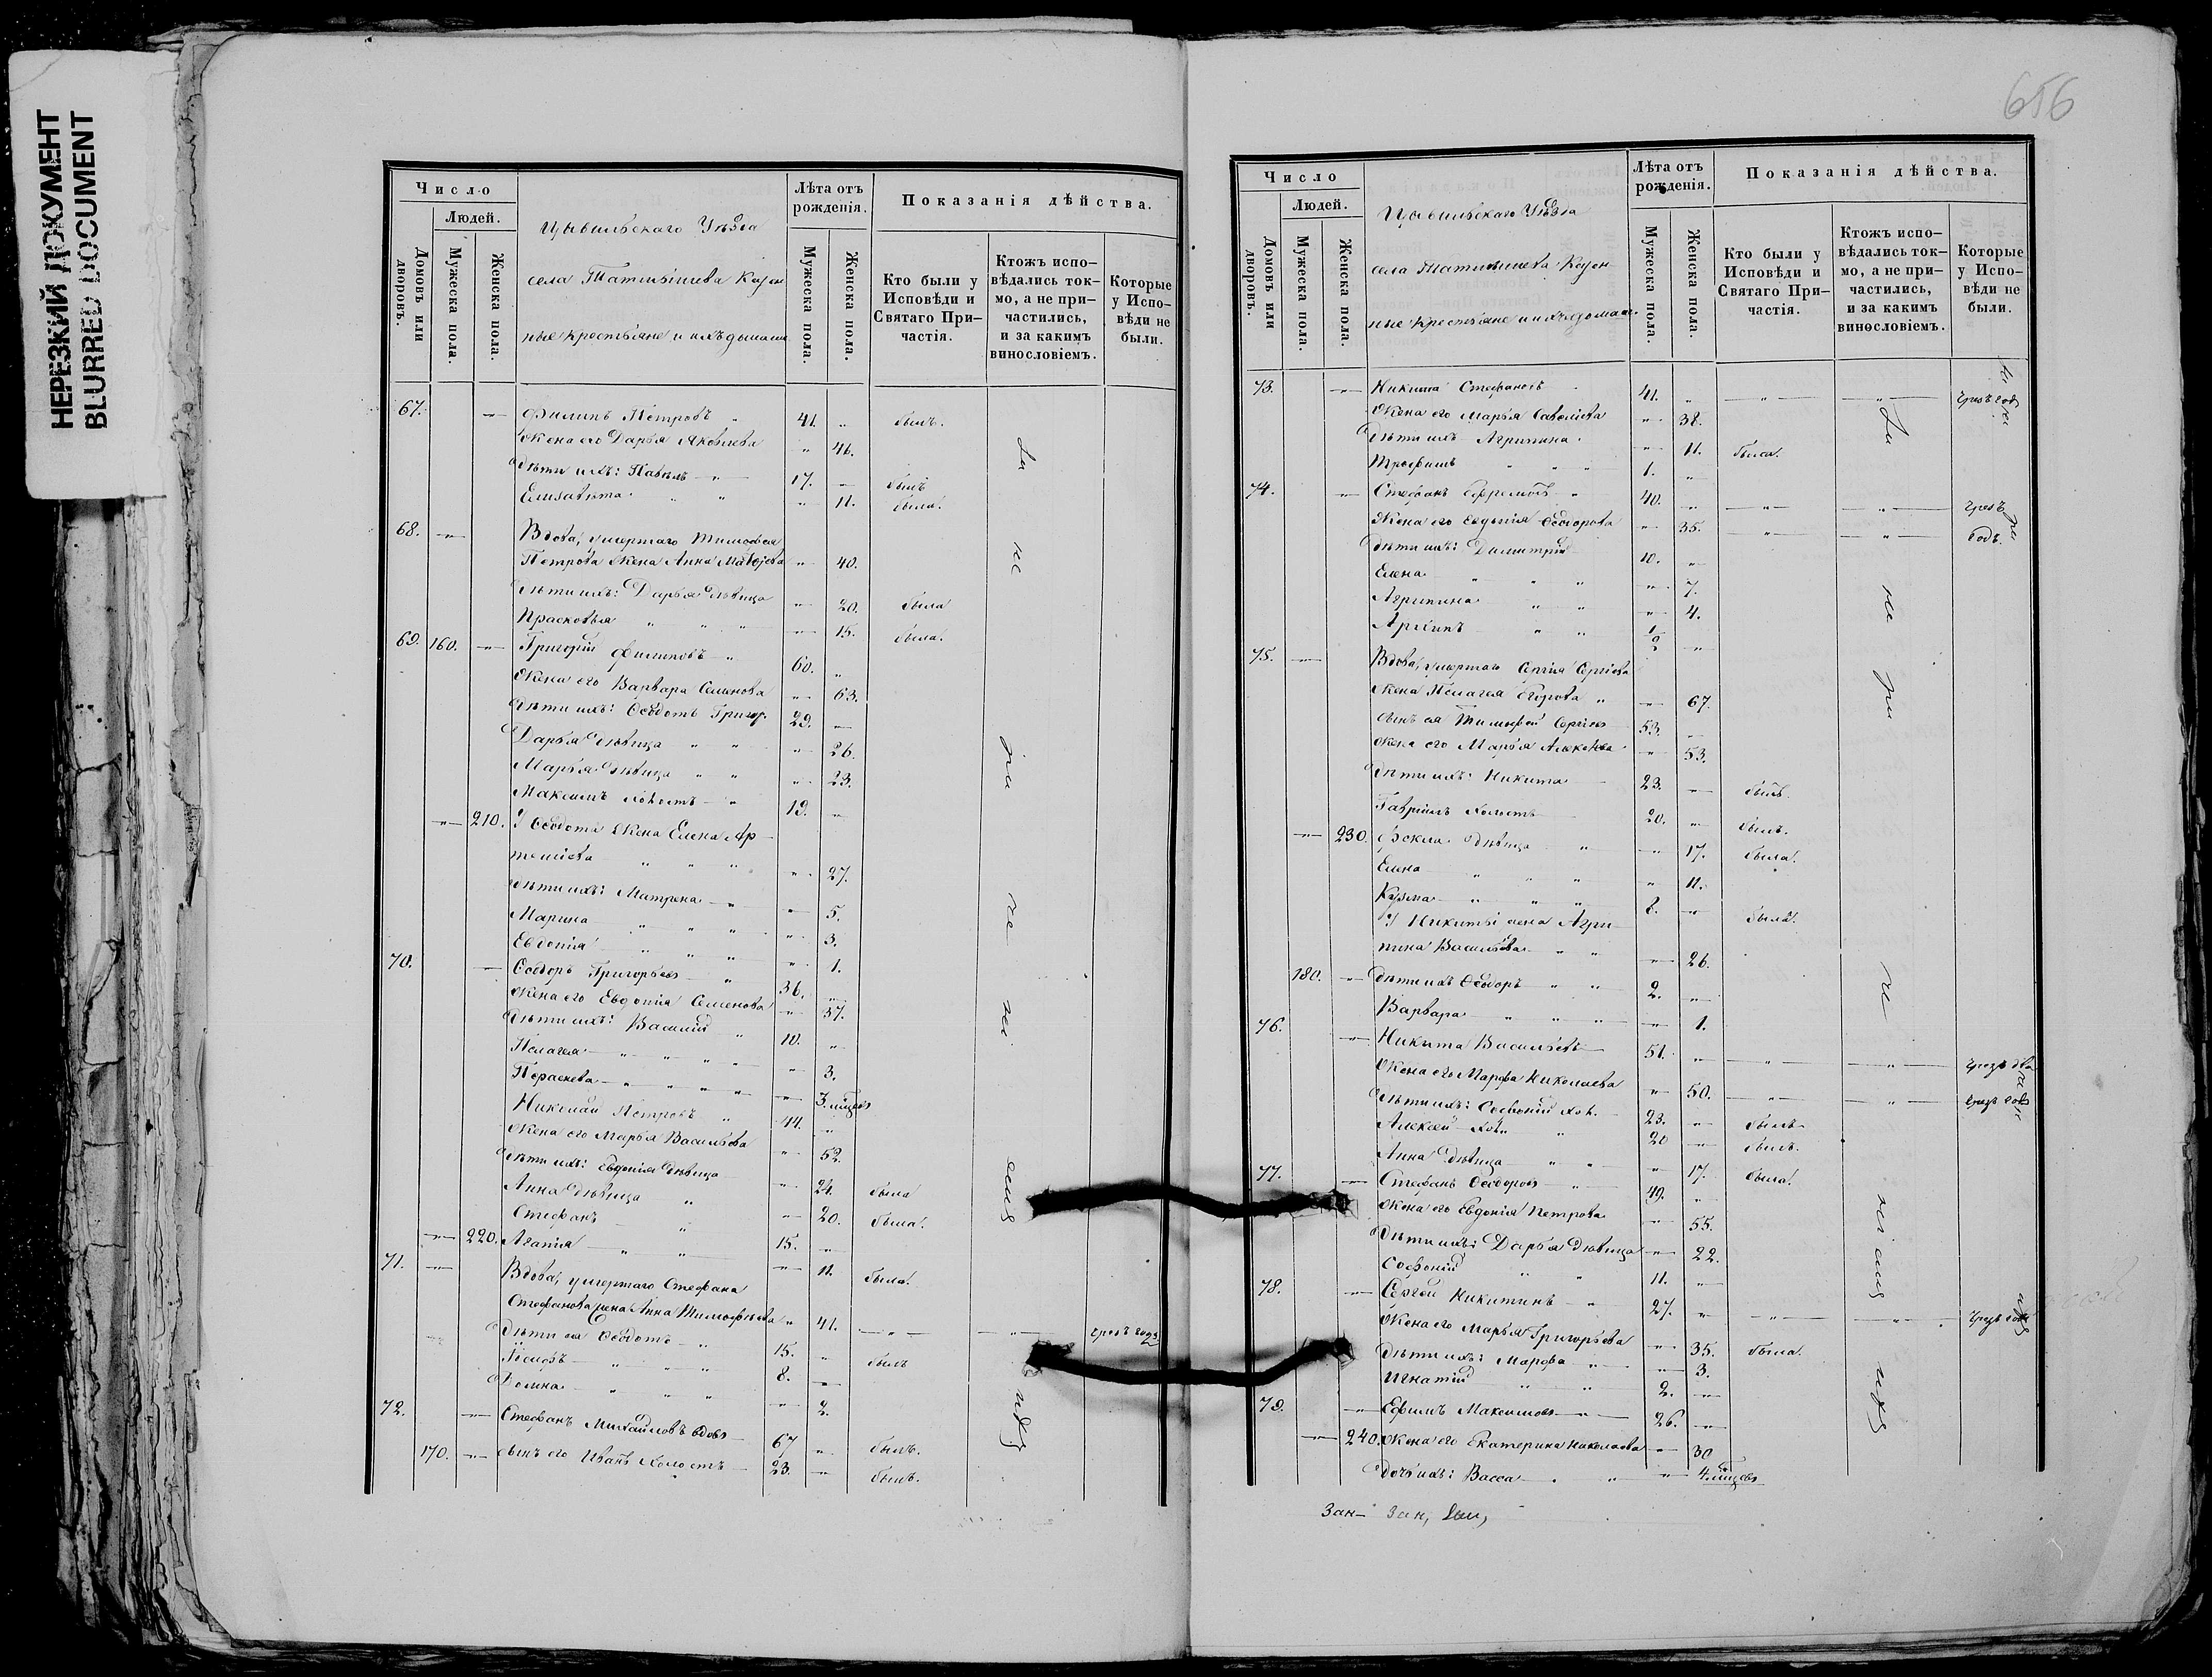 НЕРЕЗКИЙ ДОКУМЕНТ
BLURRED DOCUMENT
Число
Людей.
Домовъ или дворовъ.
Мужеска пола.
Женска пола.
Цывильскаго Уѣзда
села Татмышева Казен
ные крестьяне и ихъ домаш.
Лѣта отъ рожденія.
Мужеска пола.
Женска пола.
Показанія дѣйства.
Кто были у Исповѣди и Святаго При-частія.
Ктожъ испо-вѣдались ток-мо, а не при-частились, и за какимъ винословіемъ.
Которые у Испо-вѣди не были.
67. Филипъ Петровъ 41. былъ.
Жена его Дарья Яковлева 46.
Дѣти ихъ: Павелъ 17. былъ
Елизавета 11. была.
68. Вдова, умершаго Тимофея
Петрова жена Анна Матвѣева 40.
Дѣти ихъ: Дарья дѣвица 20. была
Прасковья 15. была.
69. 160. Григорій Филиповъ 60.
Жена его Варвара Семенова 63.
Дѣти ихъ: Ѳеодотъ Григор. 29.
Дарья дѣвица 26.
Марья дѣвица 23.
Максимъ холостъ 19.
210. У Ѳеодота жена Елена Ар
темьева 27.
Дѣти ихъ: Матрена 5.
Марина 3.
Евдокія 1.
70. Ѳеодоръ Григорьевъ 36.
Жена его Евдокія Семенова 37.
Дѣти ихъ: Василій 10.
Пелагея 3.
Параскева 3. мѣсяц
Николай Петровъ 44.
Жена его Марья Васильева 52.
Дѣти ихъ: Евдокія дѣвица 24. была
Анна дѣвица 20. была.
Стефанъ 15.
220. Агапія 11. была.
71. Вдова, умершаго Стефана
Стефанова жена Анна Тимофеева 41. чрезъ годъ
Дѣти ея Ѳеодотъ 15. былъ
Іосифъ 8.
Домна 2.
72. Стефанъ Михайловъ вдовъ 67 былъ.
170. сынъ его Иванъ холостъ 23. былъ.
656
Число
Людей.
Домовъ или дворовъ.
Мужеска пола.
Женска пола.
Цывильскаго Уѣзда
села Татмышева Казен
ные крестьяне и ихъ домаш.
Лѣта отъ рожденія.
Мужеска пола.
Женска пола.
Показанія дѣйства.
Кто были у Исповѣди и Святаго При-частія.
Ктожъ испо-вѣдались ток-мо, а не при-частились, и за какимъ винословіемъ.
Которые у Испо-вѣди не были.
73. Никита Стефановъ 41. чрезъ год
Жена его Марья Савельева 38.
Дѣти ихъ Агрипина 11. была.
Трофимъ 1.
74. Стефанъ Ефремовъ 40. чрезъ
Жена его Евдокія Ѳеодорова 35. годъ.
Дѣти ихъ: Димитрій 10.
Елена 7.
Агрипина 4.
Архипъ 1/2
75. Вдова, умершаго Сергія Сергіева
жена Пелагея Егорова 67.
сынъ ея Тимофей Сергіевъ 53.
жена его Марья Алексѣева 53.
Дѣти ихъ: Никита 23. былъ.
Гавріилъ холостъ 20. былъ.
230. Фекла дѣвица 17. была.
Елена 11.
Кузма 8. была.
У Никиты жена Агри
пина Васильева 26.
180. Дѣти ихъ Ѳеодоръ 2.
Варвара 1.
76. Никита Васильевъ 51. чрезъ два
Жена его Марфа Николаева 50. чрезъ годъ
Дѣти ихъ: Софроній хол. 23. былъ
Алексей хол. 20 былъ.
Анна дѣвица 17. была.
77. Стефанъ Ѳеодоровъ 49.
Жена его Евдокія Петрова 55.
Дѣти ихъ: Дарья дѣвица 22.
Софроній 11.
78. Сергѣй Никитинъ 27. чрезъ годъ
Жена его Марья Григорьева 35. была.
Дѣти ихъ: Марфа 3.
Игнатій 2.
79. Ефимъ Максимовъ 26.
240. Жена его Екатерина Николаева 30
Дочь ихъ: Васса 4. мѣсяц